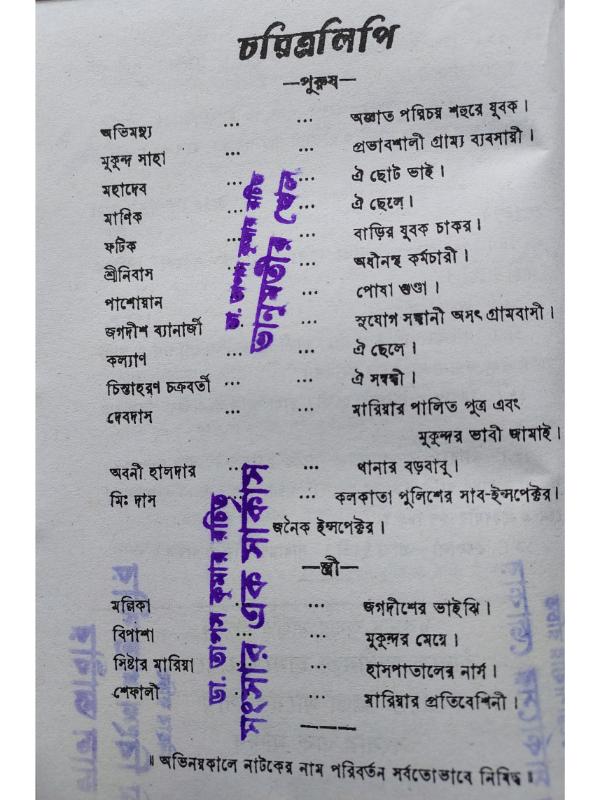 চরিত্রলিপি
—পুরুষ—
অভিমন্যু ... ... অজ্ঞাত পরিচয় শহুরে যুবক।
মুকুন্দ সাহা ... ... প্রভাবশালী গ্রাম্য ব্যবসায়ী।
মহাদেব ... ... ঐ ছোট ভাই।
মাণিক ... ... ঐ ছেলে।
ফটিক ... ... বাড়ির যুবক চাকর।
শ্রীনিবাস ... ... অধীনস্থ কর্মচারী।
পাশোয়ান ... ... পোষা গুণ্ডা।
জগদীশ ব্যানার্জী ... ... সুযোগ সন্ধানী অসৎ গ্রামবাসী।
কল্যাণ ... ... ঐ ছেলে।
চিন্তাহরণ চক্রবর্তী ... ... ঐ সম্বন্ধী।
দেবদাস ... ... মারিয়ার পালিত পুত্র এবং
মুকুন্দর ভাবী জামাই।
অবনী হালদার ... ... থানার বড়বাবু।
মিঃ দাস ... ... কলকাতা পুলিশের সাব-ইন্সপেক্টর।
জনৈক ইন্সপেক্টর।
—স্ত্রী—
মল্লিকা ... ... জগদীশের ভাইঝি।
বিপাশা ... ... মুকুন্দর মেয়ে।
সিষ্টার মারিয়া ... ... হাসপাতালের নার্স।
শেফালী ... ... মারিয়ার প্রতিবেশিনী।
॥ অভিনয়কালে নাটকের নাম পরিবর্তন সর্বতোভাবে নিষিদ্ধ ॥
ডা. তাপস কুমার রচিত
ভানুমতীর খেল
ডা. তাপস কুমার রচিত
সংসার এক সার্কাস